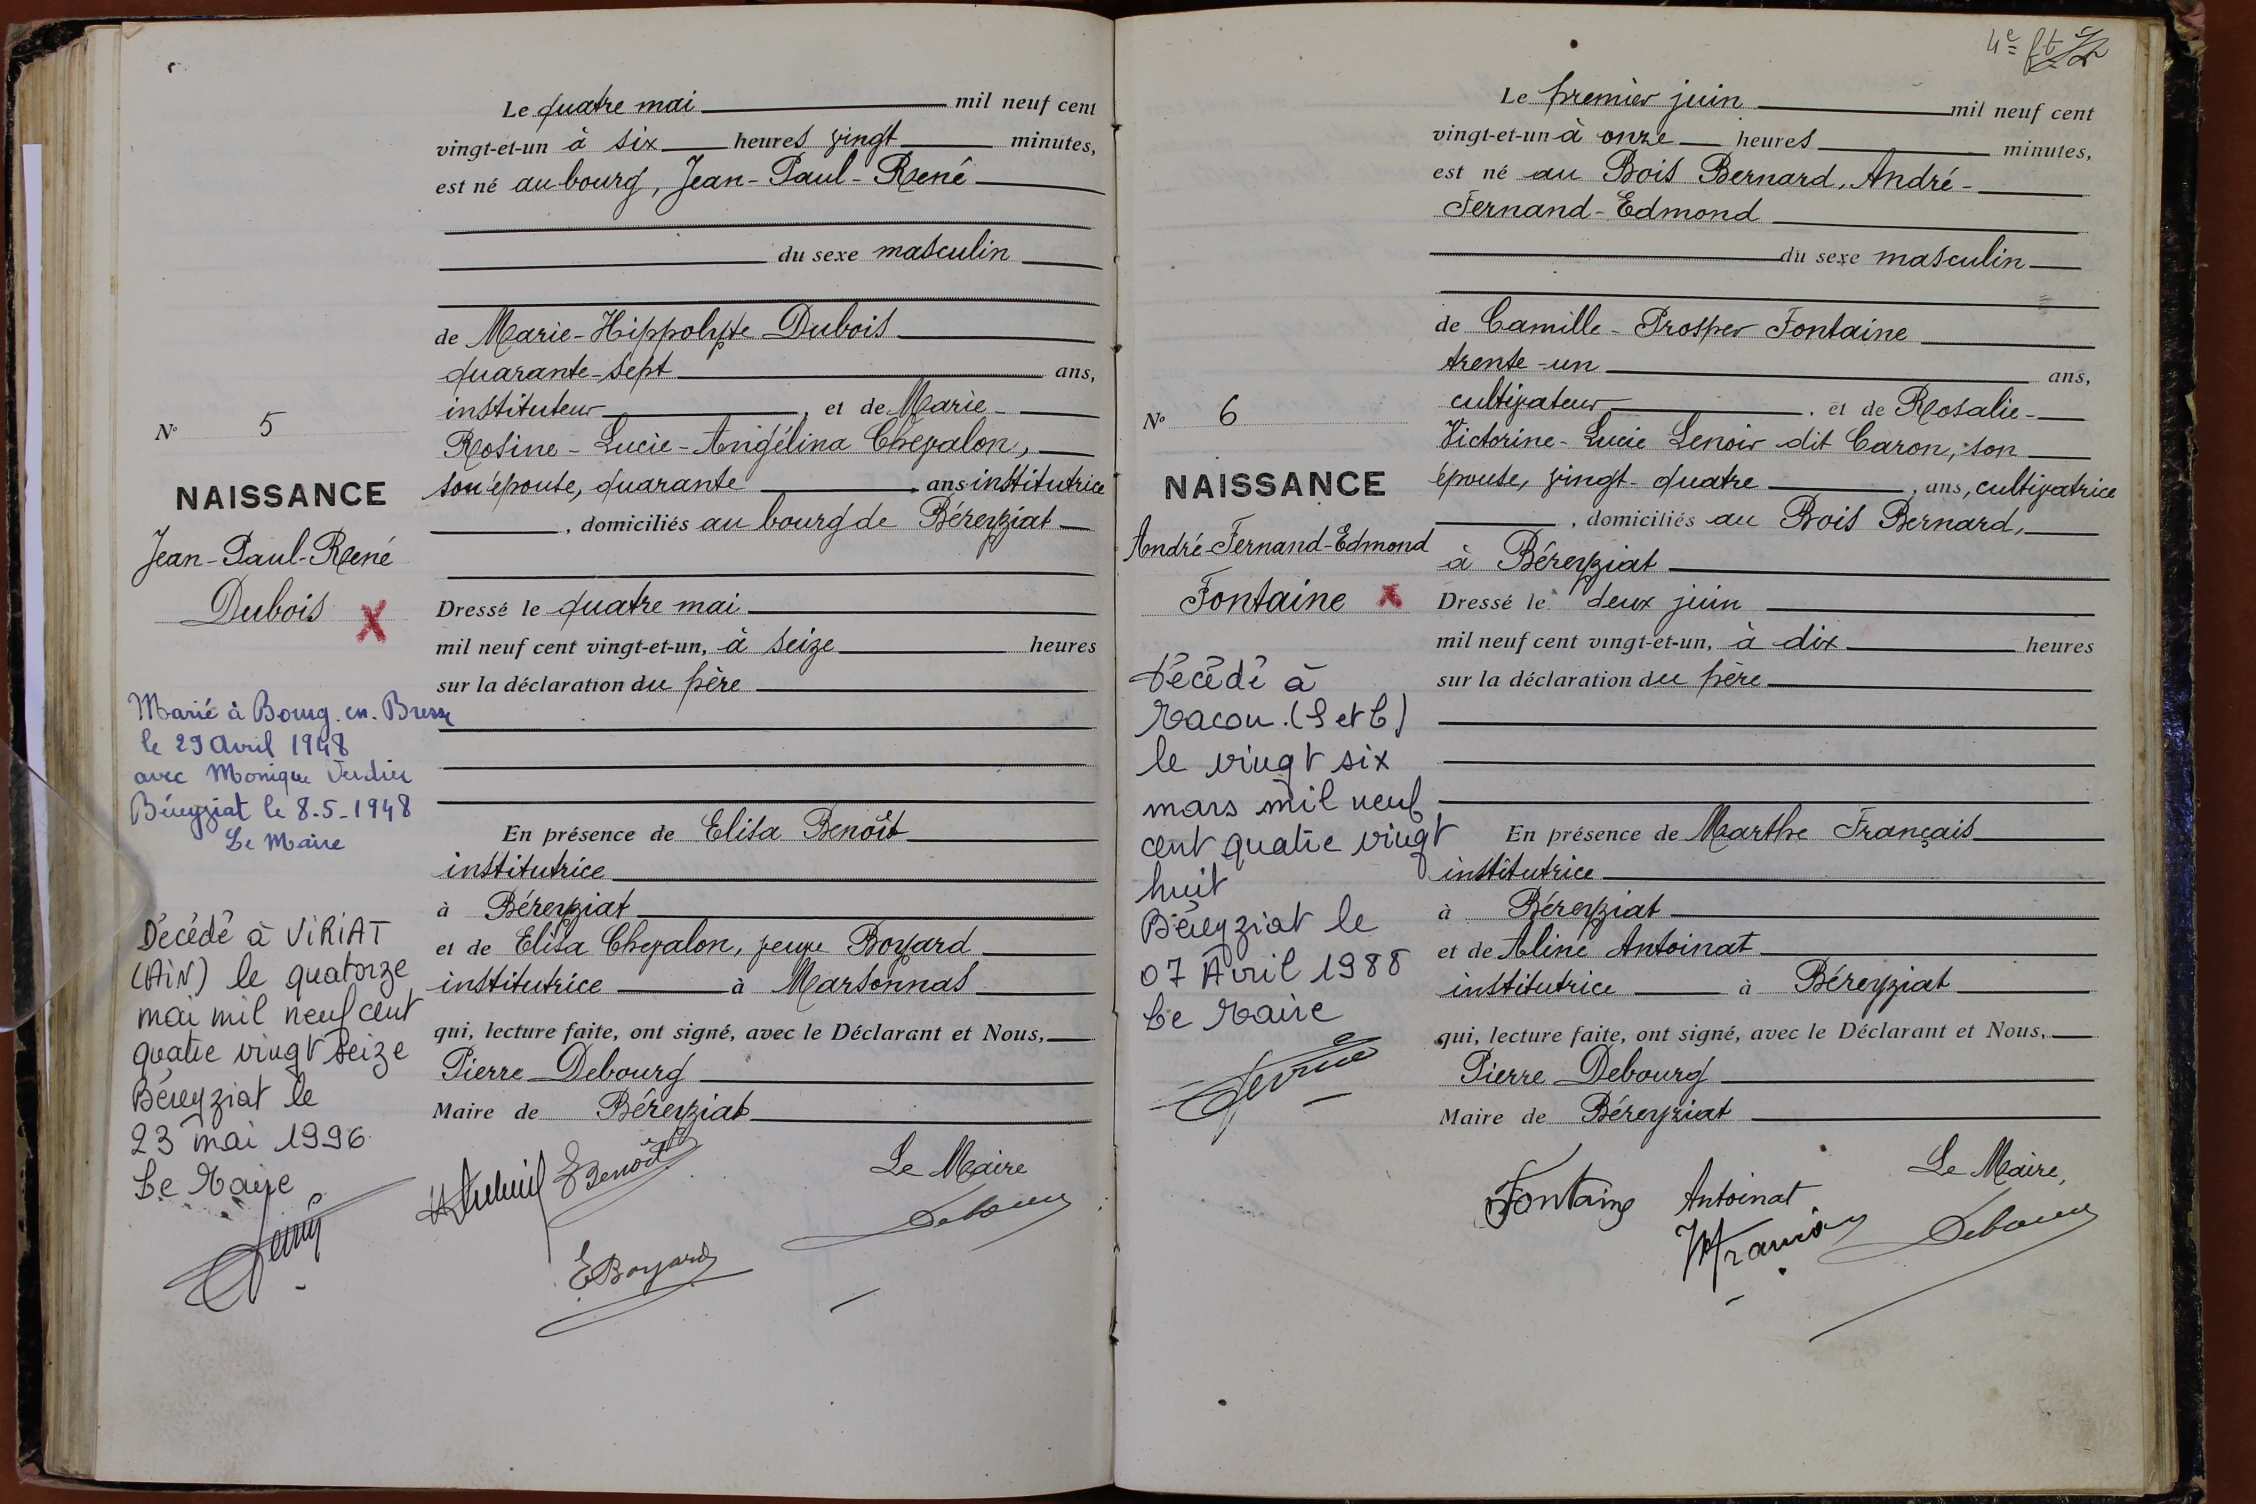 Le quatre mai mil neuf cent
vingt-et-un à six heures vingt minutes,
est né au bourg, Jean-Paul-René
du sexe masculin
de Marie-Hippolyte Dubois
quarante-sept ans,
instituteur, et de Marie-
Rosine-Lucie-Angélina Chevalon,
son épouse, quarante ans institutrice
, domiciliés au bourg de Béreyziat
Dressé le quatre mai
mil neuf cent vingt-et-un, à seize heures
sur la déclaration du père
En présence de Elisa Benoît
institutrice
à Béreyziat
et de Elisa Chevalon, veuve Boyard
institutrice à Marsonnas
qui, lecture faite, ont signé, avec le Déclarant et Nous,
Pierre Debourg
Maire de Béreyziat
Le Maire
EBenoît
Debourg
EBoyard
No 5
NAISSANCE
Jean-Paul-René
Dubois X
Marié à Bourg.en.Bresse
le 29 Avril 1948
avec Monique Verdier
Béreyziat le 8.5-1948
Le Maire
Décédé à ViRiAT
(AiN) le quatorze
mai mil neuf cent
quatre vingt seize
Béreyziat le
23 mai 1996
Le Maire
4e ft
Le premier juin mil neuf cent
vingt-et-un à onze heures minutes,
est né au Bois Bernard, André-
Fernand-Edmond
du sexe masculin
de Camille-Prosper Fontaine
trente-un ans,
cultivateur, et de Rosalie-
Victorine-Lucie Lenoir dit Caron, son
épouse, vingt-quatre, ans, cultivatrice
, domiciliés au Bois Bernard,
à Béreyziat
Dressé le deux juin
mil neuf cent vingt-et-un, à dix heures
sur la déclaration du père
En présence de Marthe Français
institutrice
à Béreyziat
et de Aline Antoinat
institutrice à Béreyziat
qui, lecture faite, ont signé, avec le Déclarant et Nous,
Pierre Debourg
Maire de Béreyziat
Le Maire,
Fontaine Antoinat
MFrançais Debourg
No 6
NAISSANCE
André-Fernand-Edmond
Fontaine X
Décédé à
Macon.(S et L)
le vingt six
mars mil neuf
cent quatre vingt
huit
Béreyziat le
07 Avril 1988
Le Maire